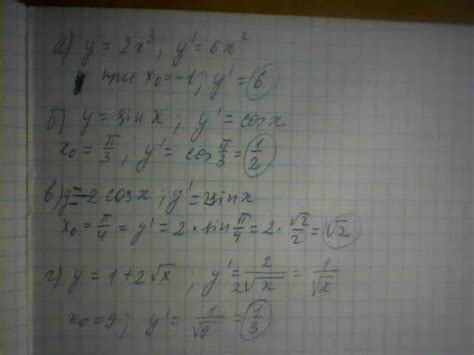 а) y = 2x³, y' = 6x²
при x₀ = -1; y' = 6
б) y = sin x; y' = cos x
x₀ = π/3, y' = cos π/3 = 1/2
в) y = -2 cos x; y' = 2 sin x
x₀ = π/4 = y' = 2 · sin π/4 = 2 · √2/2 = √2
г) y = 1 + 2√x; y' = 2/2√x = 1/√x
x₀ = 9; y' = 1/√9 = 1/3